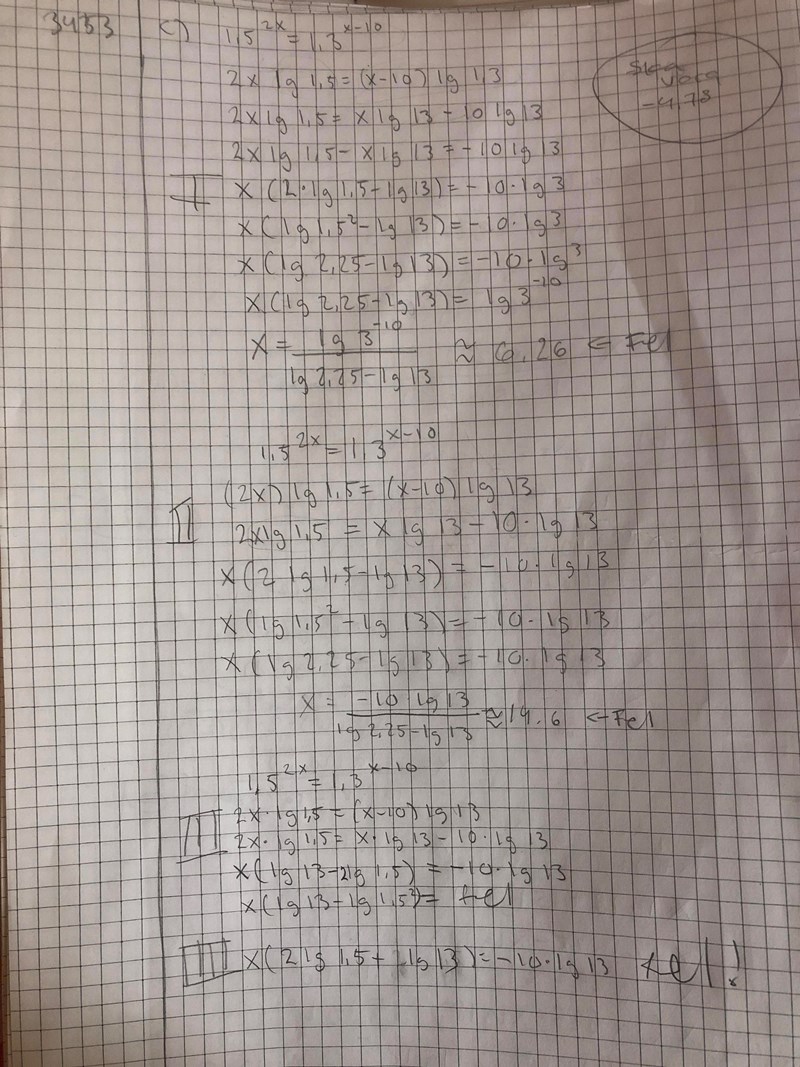 3453 c) 1,5^{2x} = 1,3^{x-10}
2x lg 1,5 = (x-10) lg 13
2x lg 1,5 = x lg 13 - 10 lg 13
2x lg 1,5 - x lg 13 = -10 lg 13
I x (2·lg 1,5 - lg 13) = -10·lg 3
x (lg 1,5² - lg 13) = -10·lg 3
x (lg 2,25 - lg 13) = -10·lg 3
x (lg 2,25 - lg 13) = lg 3^{-10}
x = lg 3^{-10} / lg 2,25 - lg 13 ≈ 6,26 ← Fel
Ska
vara
-4,78
1,5^{2x} = 1,3^{x-10}
(2x) lg 1,5 = (x-10) lg 13
II 2x lg 1,5 = x lg 13 - 10·lg 13
x (2 lg 1,5 - lg 13) = -10·lg 13
x (lg 1,5² - lg 13) = -10·lg 13
x (lg 2,25 - lg 13) = -10·lg 13
x = -10 lg 13 / lg 2,25 - lg 13 ≈ 14.6 ← Fel
1,5^{2x} = 1,3^{x-10}
III 2x·lg 1,5 = (x-10) lg 13
2x·lg 1,5 = x·lg 13 - 10·lg 13
x (lg 13 - 2lg 1,5) = -10·lg 13
x (lg 13 - lg 1,5²) = fel
IIII x (2 lg 1,5 + lg 13) = -10·lg 13 fel!